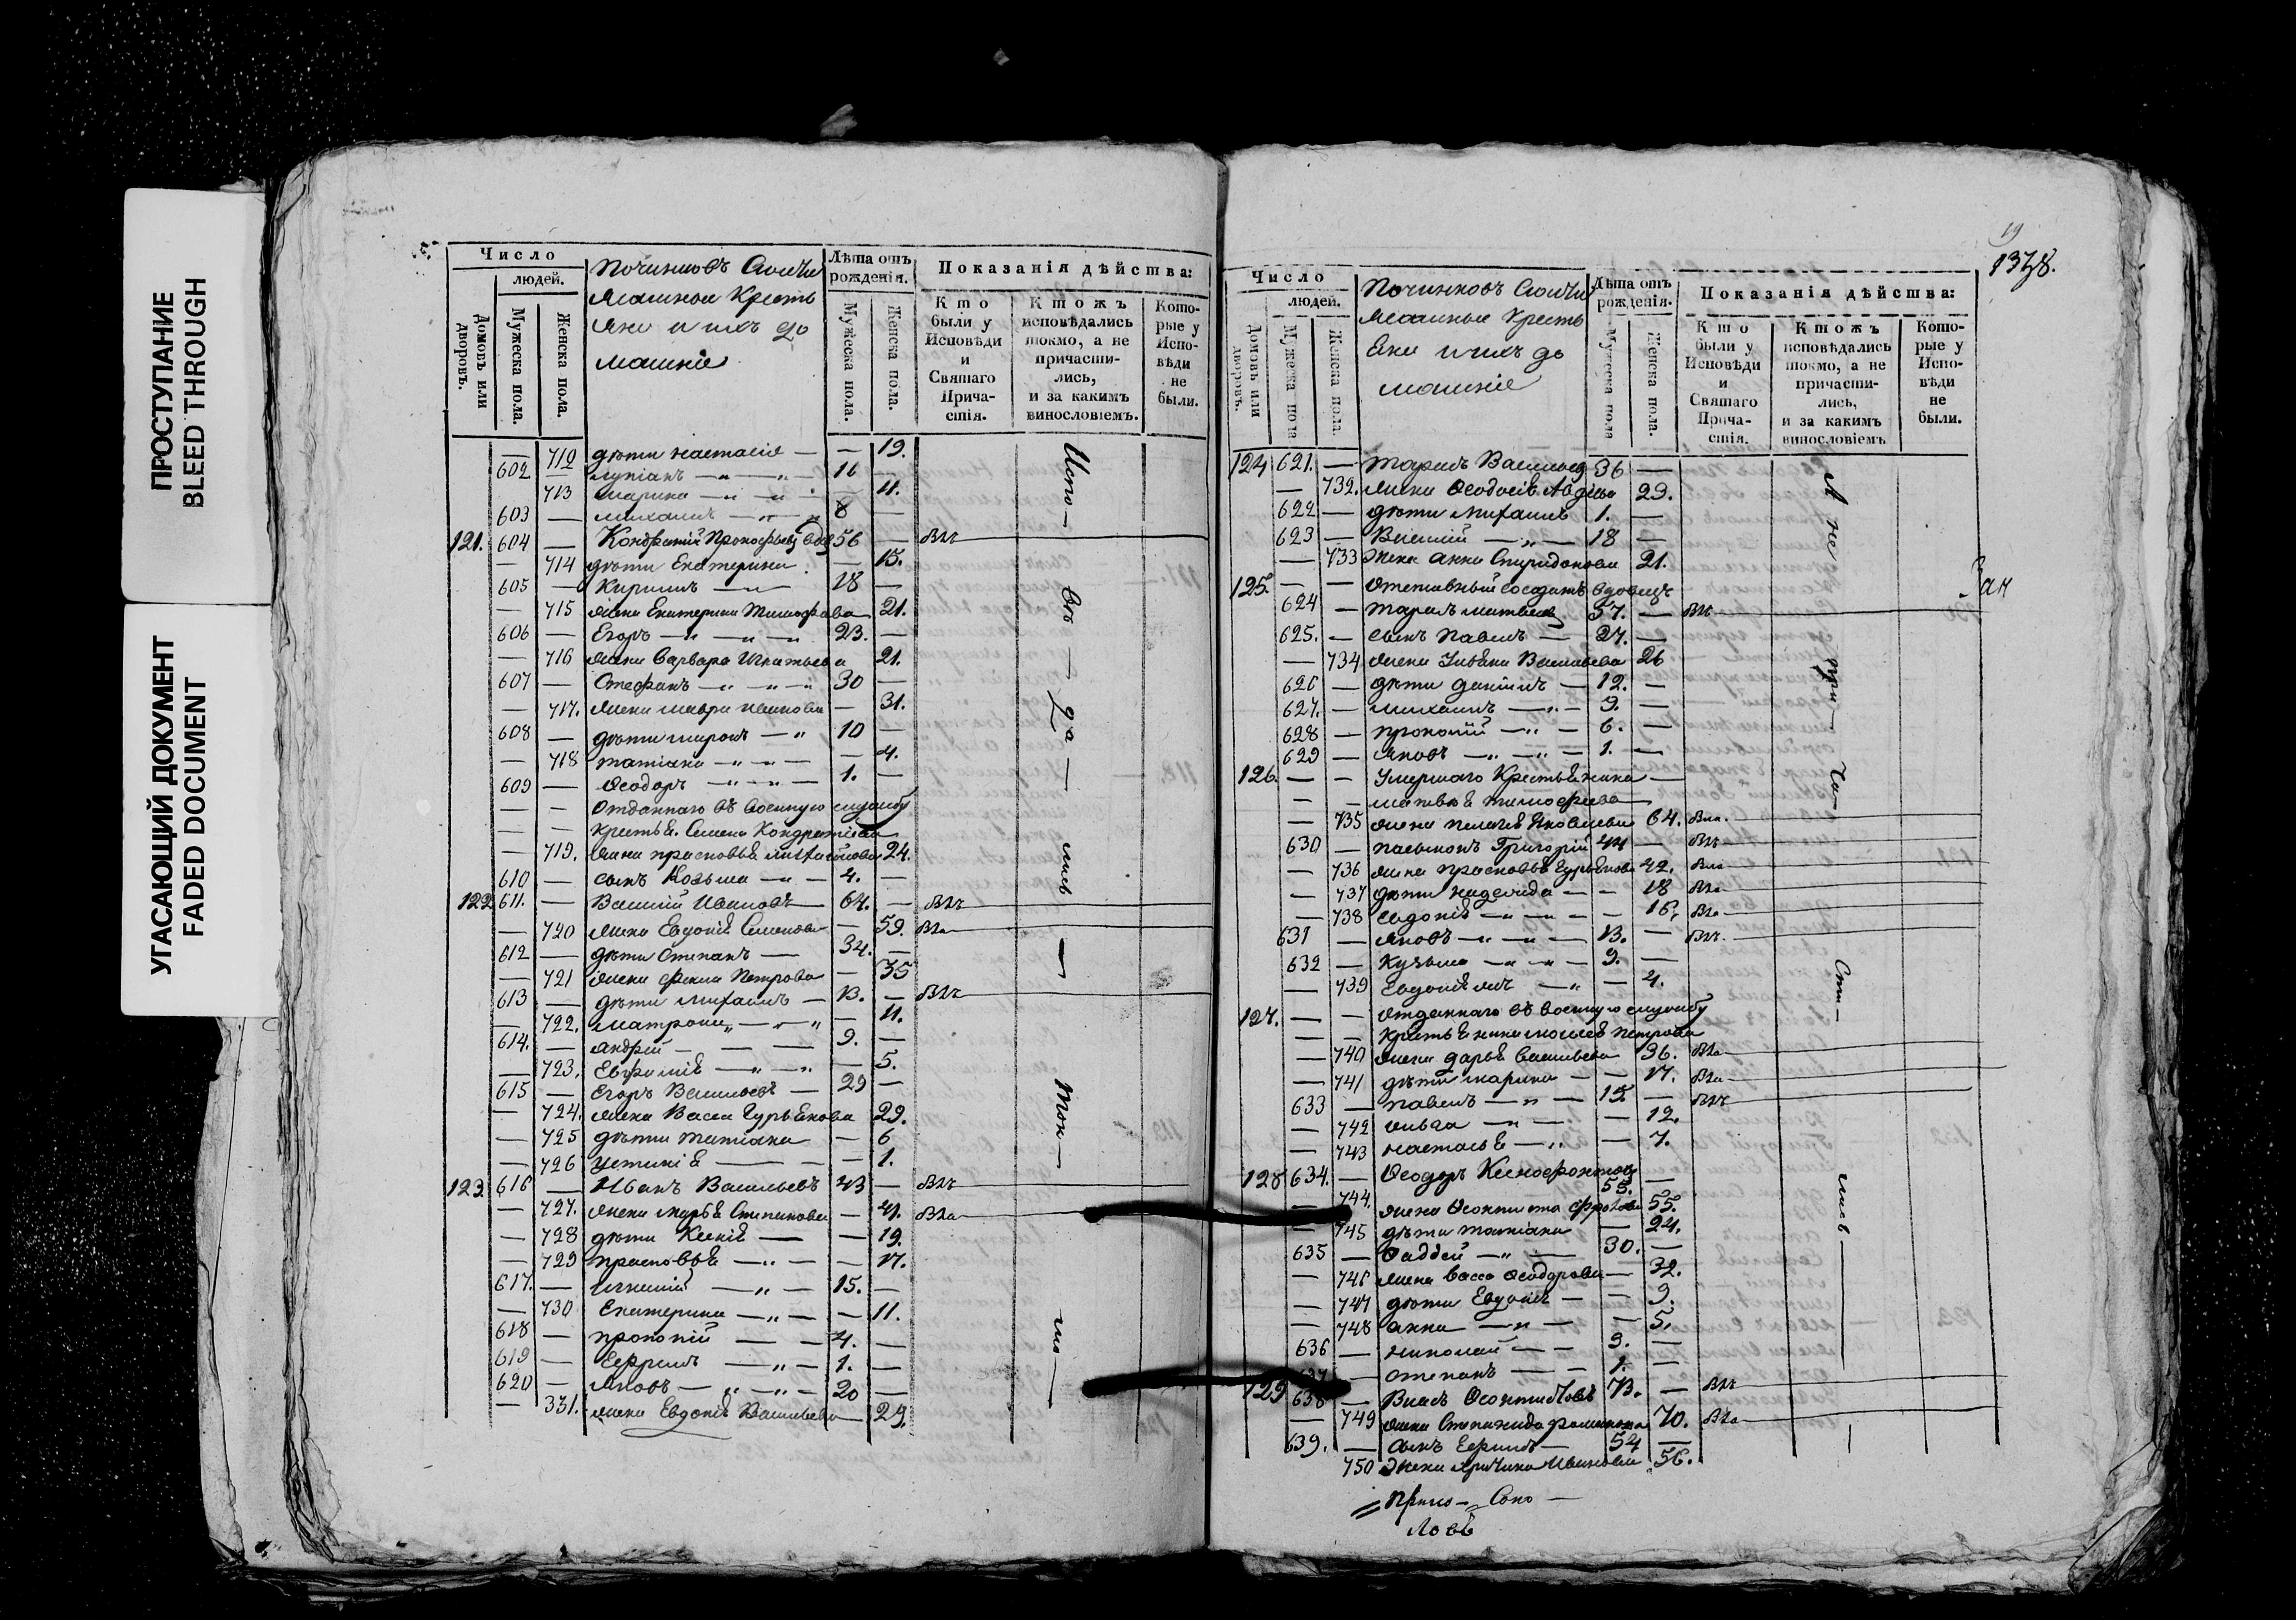 ПРОСТУПАНИЕ
BLEED THROUGH
УГАСАЮЩИЙ ДОКУМЕНТ
FADED DOCUMENT
Число
людей.
Домовъ или дворовъ.
Мужеска пола.
Женска пола.
Починковъ
Крестъ
яне и ихъ до
машніе
Лѣта отъ рожденія.
Мужеска пола.
Женска пола.
Показанія дѣйства:
Кто были у Исповѣди и Святаго Прича-стія.
Ктожъ исповѣдались токмо, а не причасти-лись, и за какимъ винословіемъ.
Кото-рые у Испо-вѣди не были.
— 712 дѣти Настасія — — 19.
602 — Лукіанъ — 16 —
— 713 Марина — 11.
603 — Михаилъ — 8 —
121. 604 — Кондратій Прокофьевъ вдов 56 — Былъ
— 714 дѣти Екатерина — 15.
605 — Кирилъ — 18 —
— 715 жена Екатерина Тимофѣева 21.
606 — Егоръ — 23. —
— 716 жена Варвара Игнатьева 21.
607 — Стефанъ — 30 —
— 717. жена Мавра Иванова — 31.
608 — дѣти Миронъ — 10 —
— 718 Татіана — — 4.
609 — Ѳеодоръ — 1. —
— — Отданнаго въ военную службу
— — Крестья. Семена Кондратьева
— 719. жена Прасковья 24.
610 — сынъ Козьма — 4. —
122. 611. — Василій Ивановъ — 64. — Былъ
— 720 жена Евдокія Семенова — 59. Была
612 — дѣти Степанъ — 34. —
— 721 жена Петрова — 35
613 — дѣти Михаилъ — 13. — Былъ
— 722. Матрона — 11.
614. — Андрей — 9. —
— 723. — 5.
615 — Егоръ Васильевъ — 29 —
— 724. жена Васса Гурьянова 29.
— 725 дѣти Татіана — 6
— 726 Устинія — — 1.
123. 616 — Иванъ Васильевъ 43 — Былъ
— 727. жена Марья Степанова — 41. Была
— 728 дѣти Ксенія — — 19.
— 729 Прасковья — — 17.
617. — Игнатій — 15. —
— 730 Екатерина — — 11.
618 — Прокопій — 4. —
619 — Ефремъ — 1. —
620 — Яковъ — 20 —
— 331. жена Евдокія Васильева — 24.
Испо — вѣ — да — лись — ток — мо —
19
1378.
Число
людей.
Домовъ или дворовъ.
Мужеска пола
Женска пола.
Починковъ
Крестъ
яне и ихъ до
машніе
Лѣта отъ рожденія.
Мужеска пола
Женска пола.
Показанія дѣйства:
Кто были у Исповѣди и Святаго Прича-стія.
Ктожъ исповѣдались токмо, а не причасти-лись, и за какимъ винословіемъ
Кото-рые у Испо-вѣди не были.
124 621. — Тарасъ Васильев 36 —
— 732. жена Ѳеодосія 29.
622 — дѣти Михаилъ 1. —
623 — Василій — 18 —
— 733 Жена Анна Спиридонова 21.
125. — — Отставный солдатъ вдовецъ
624 — Тарасъ Матвѣев 57. — Былъ
625. — сынъ Павелъ — 27. —
— 734 жена Ульяна Васильева 26
626 — дѣти Даніилъ — 12. —
627. — Михаилъ — 9. —
628 — Прокопій — 6. —
629 — Яковъ — 1. —
126. — — Умершаго Крестьянина —
— — Матвѣя Тимофѣева —
— 735 жена Пелагея Яковлева 64. Была.
630 — пасынокъ Григорій 44 — Былъ
— 736 жена Прасковья Гурьянова 42. Была
— 737 дѣти Надежда — — 18 Была
— 738 Евдокія — — 16. Была
631 — Яковъ — 13. — Былъ.
632 — Кузьма — 9. —
— 739 — 4.
127. — — Отданнаго въ военную службу
— — Крестьянина Моисея Петрова
— 740 жена Дарья Васильева 36. Была
— 741 дѣти Марина — — 17. Была
633 — Павелъ — 15 — Былъ
— 742 Ольга — — 12.
— 743 Настасья — — 7.
128 634. — Ѳеодоръ Ксенофонтов 55. —
— 744. жена Ѳеоктиста Фролова 55.
— 745 дѣти Татіана — 24.
635 — Ѳаддей — 30. —
— 746 жена Васса Ѳеодорова — 32.
— 747 дѣти Евдокія — — 9.
— 748 Анна — — 5.
636 — Николай — 3. —
637 — Степанъ — 1. —
129 638 — Власъ Ѳеоктистовъ 73. — Былъ
— 749 жена Степанида 70. Была
639. — сынъ Ефимъ — 54 —
750 Жена Ирина Иванова 56.
А не — при — ча — сти — лись —
Зак